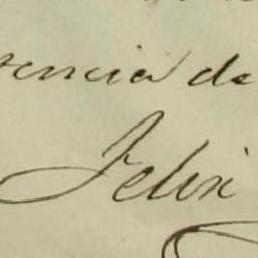 encia de
Felix